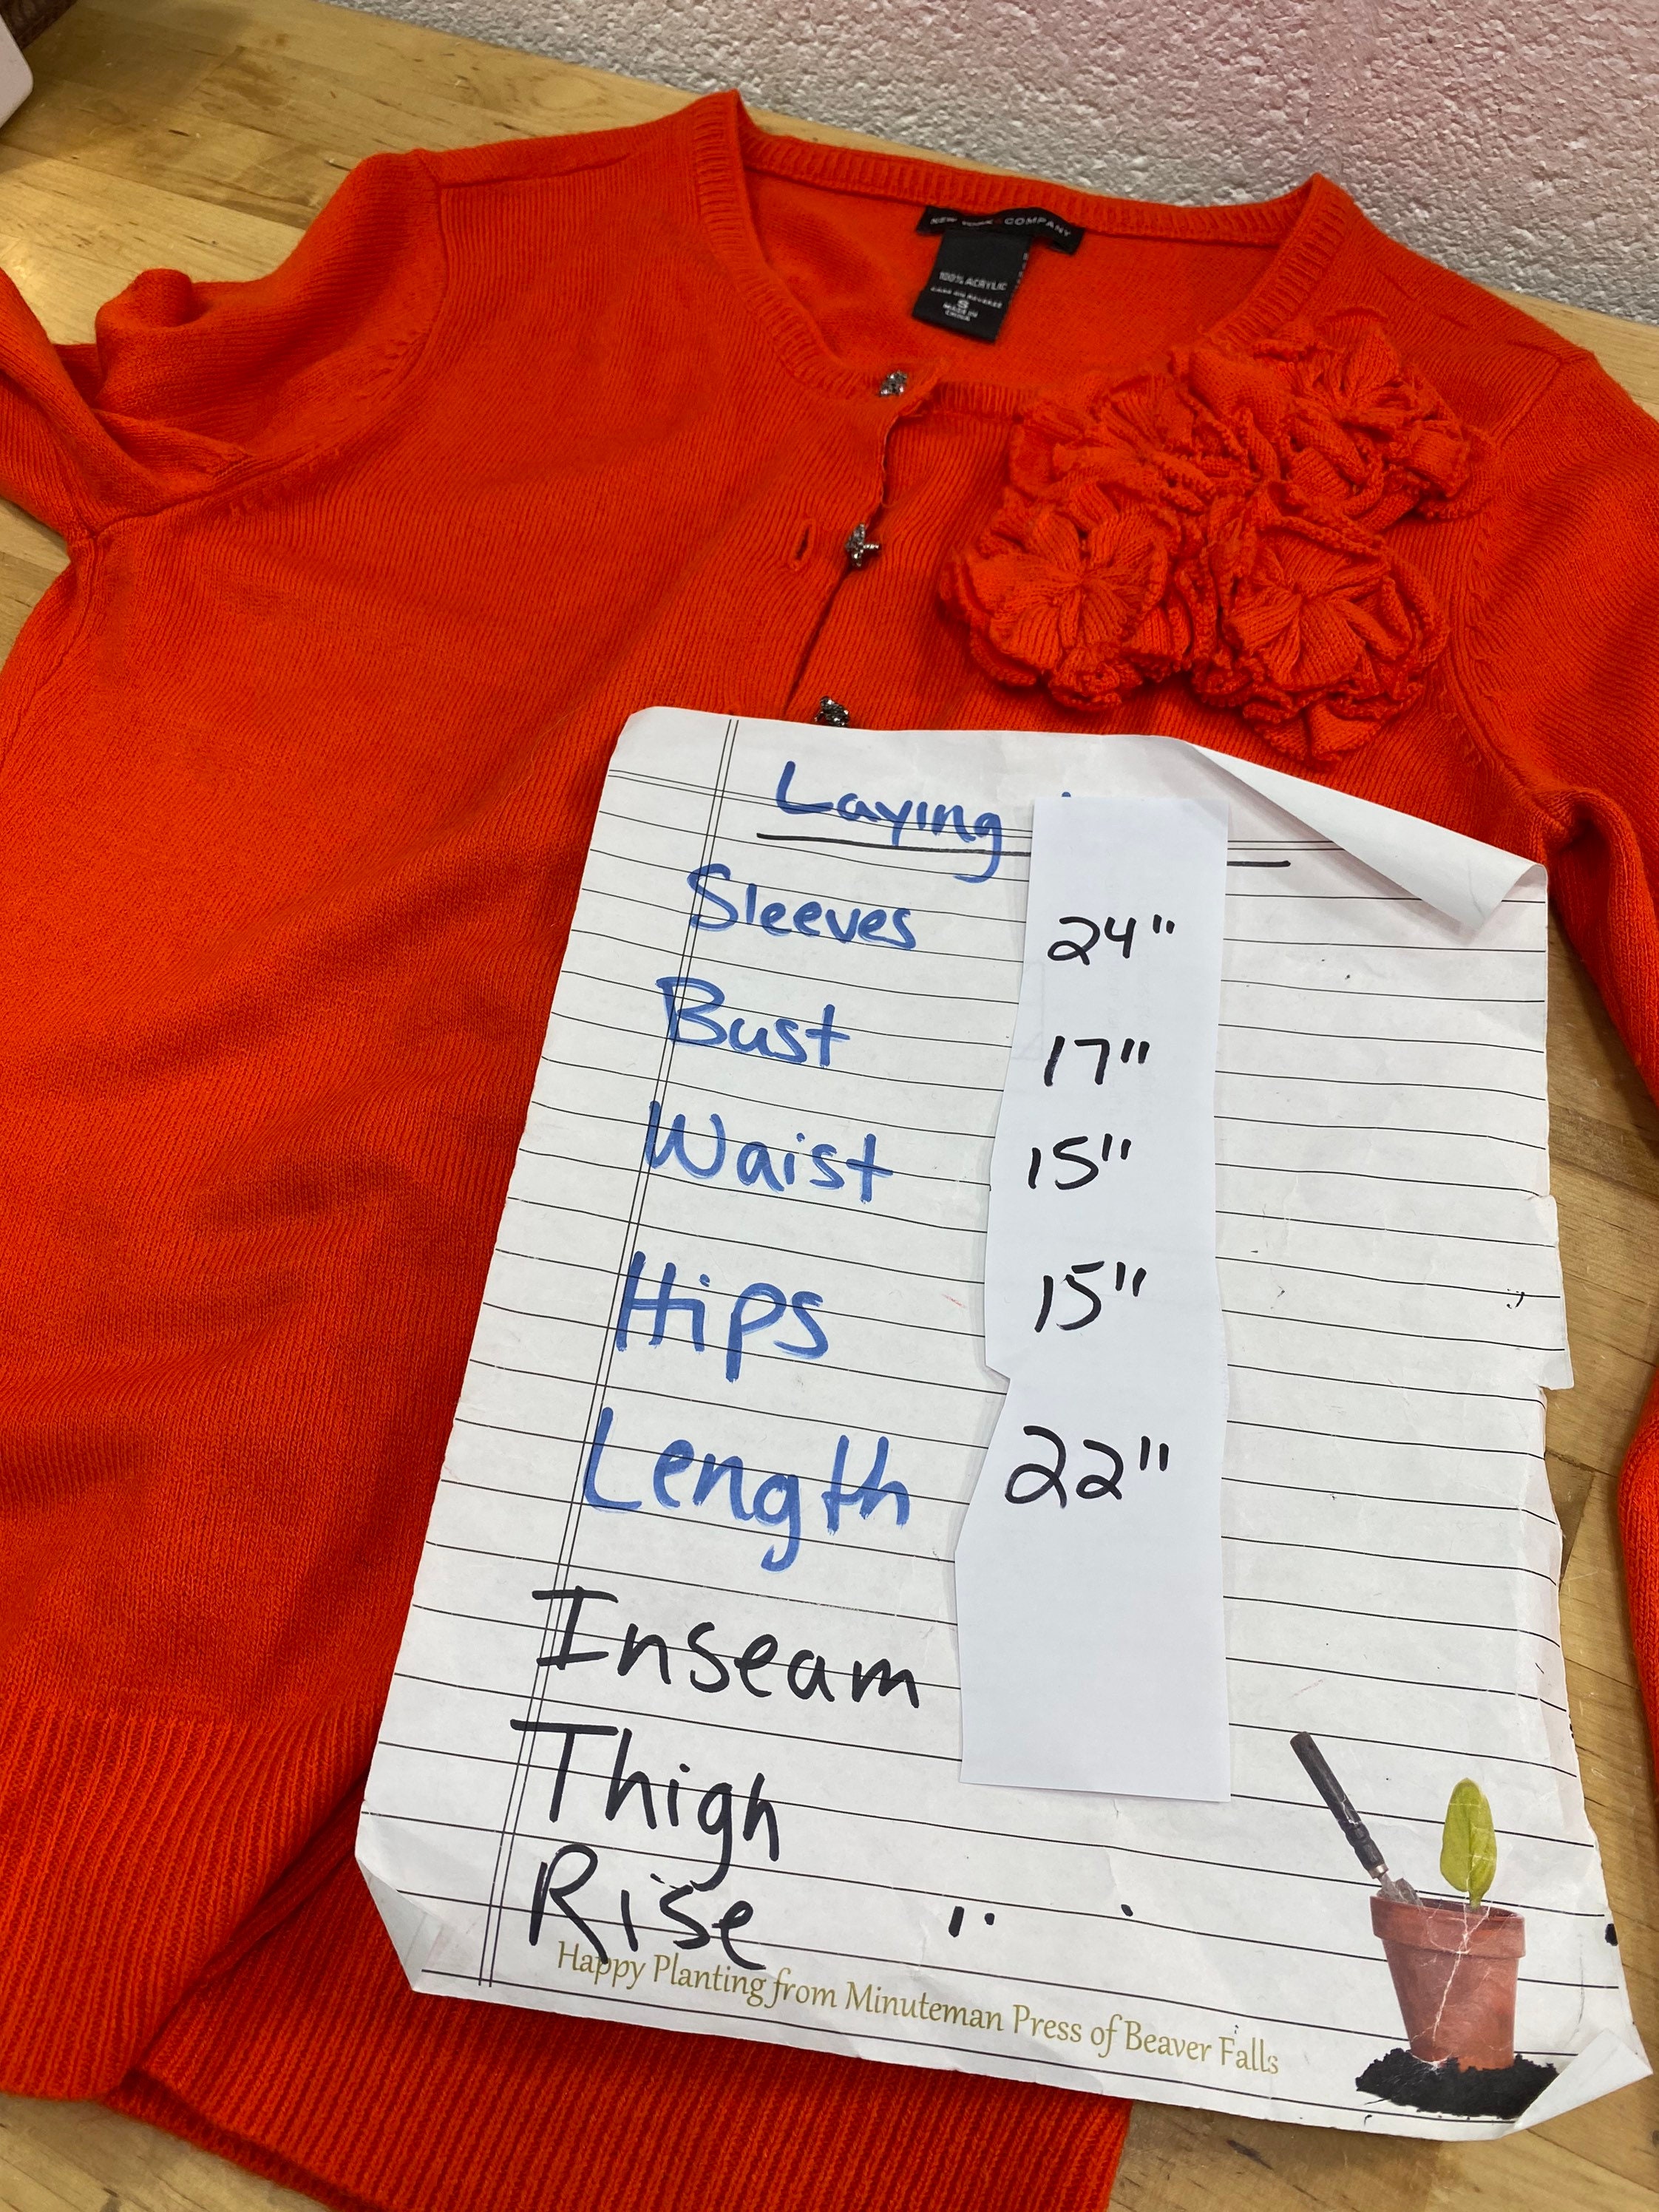 NEW YORK & COMPANY
100% ACRYLIC
CARE ON REVERSE
S
MADE IN
CHINA
Laying
Sleeves 24"
Bust 17"
Waist 15"
Hips 15"
Length 22"
Inseam
Thigh
Rise
Happy Planting from Minuteman Press of Beaver Falls